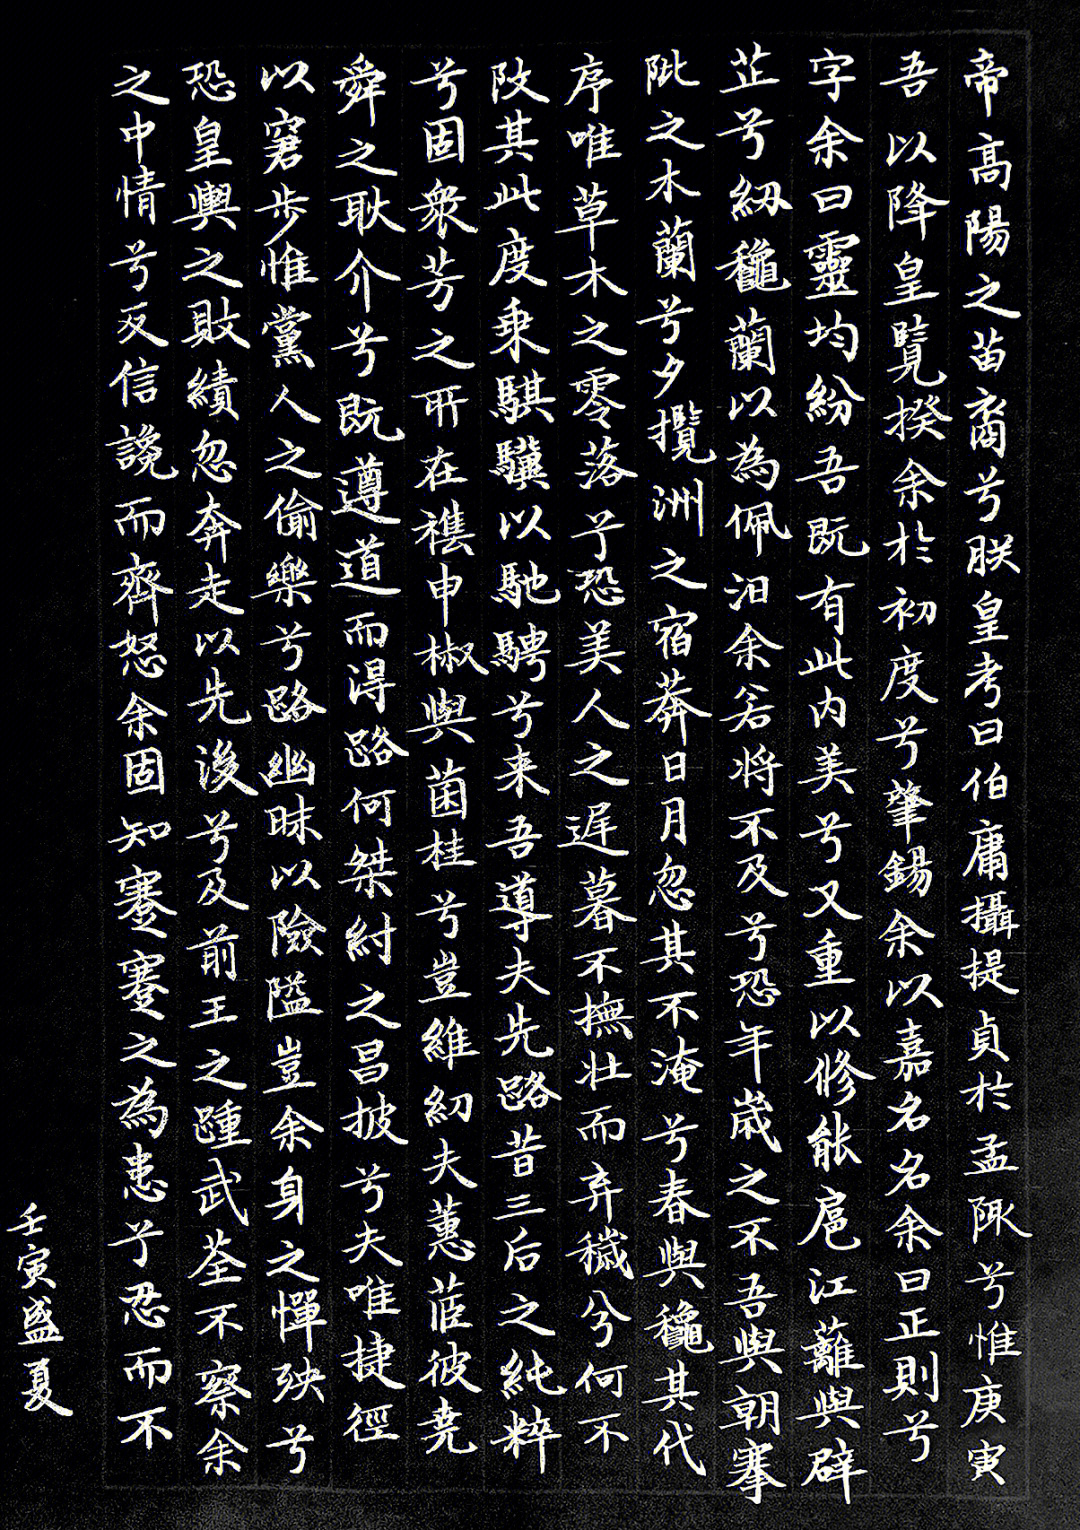 帝高陽之苗裔兮朕皇考曰伯庸攝提貞於孟陬兮惟庚寅
吾以降皇覽揆余於初度兮肇錫余以嘉名名余曰正則兮
字余曰靈均紛吾既有此内美兮又重以修能扈江蘺與辟
芷兮紉龝蘭以為佩汨余若將不及兮恐年歲之不吾與朝搴
阰之木蘭兮夕攬洲之宿莽日月忽其不淹兮春與龝其代
序唯草木之零落兮恐美人之遲暮不撫壯而弃穢兮何不
改其此度乘騏驥以馳騁兮来吾導夫先路昔三后之純粹
兮固衆芳之所在襍申椒與菌桂兮豈維紉夫蕙茝彼堯
舜之耿介兮既遵道而得路何桀紂之昌披兮夫唯捷徑
以窘步惟黨人之偷樂兮路幽昧以險隘豈余身之憚殃兮
恐皇輿之敗績忽奔走以先後兮及前王之踵武荃不察余
之中情兮反信讒而齊怒余固知蹇蹇之為患兮忍而不
壬寅盛夏